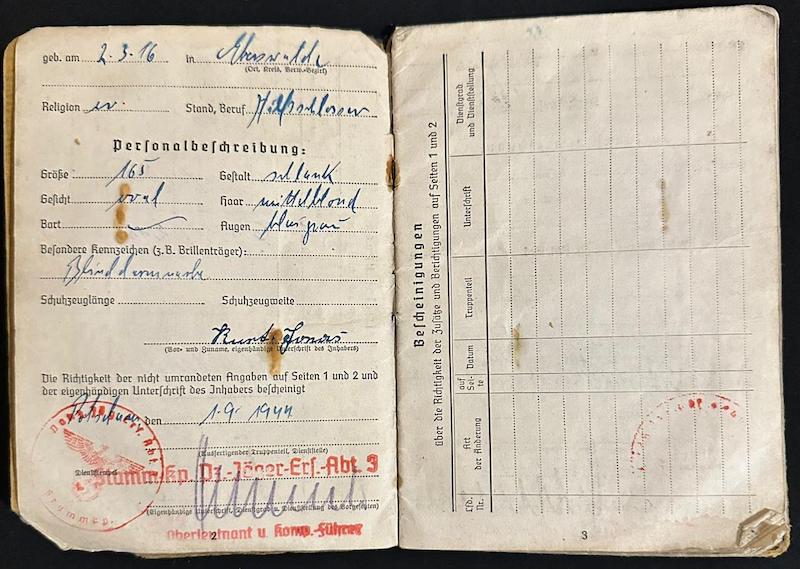 geb. am 2.3.16 in Eberswalde
(Ort, Kreis, Verw.-Bezirk)
Religion ev. Stand, Beruf
Personalbeschreibung:
Größe 165 Gestalt schlank
Gesicht oval Haar mittelblond
Bart — Augen blaugrau
Besondere Kennzeichen (z.B. Brillenträger):
Blinddarmnarbe
Schuhzeuglänge Schuhzeugweite
(Vor- und Zuname, eigenhändige Unterschrift des Inhabers)
Die Richtigkeit der nicht umrandeten Angaben auf Seiten 1 und 2 und
der eigenhändigen Unterschrift des Inhabers bescheinigt
Potsdam den 1.9.1944
(Ausfertigender Truppenteil, Dienststelle)
Dienststempel
Stamm-Kp. Pz.-Jäger-Ers.-Abt. 3
(Eigenhändige Unterschrift, Dienstgrad u. Dienststellung des Vorgesetzten)
Oberleutnant u. Komp.-Führer
2
Bescheinigungen
über die Richtigkeit der Zusätze und Berichtigungen auf Seiten 1 und 2
Lfd. Nr.
Art der Änderung
auf Seite
Datum
Truppenteil
Unterschrift
Dienstgrad und Dienststellung
3